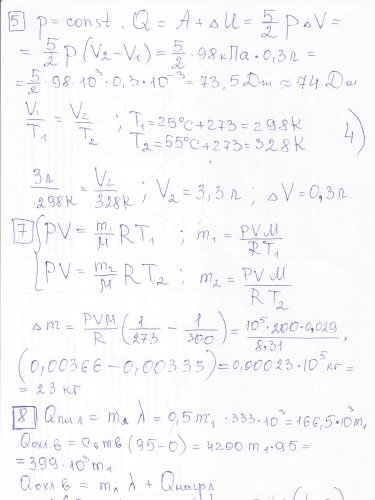 5 p = const. Q = A + ΔU = 5/2 pΔV =
= 5/2 p(V₂-V₁) = 5/2 · 98кПа · 0,3л =
= 5/2 · 98 · 10³ · 0,3 · 10⁻³ = 73,5 Дж ≈ 74 Дж
V₁/T₁ = V₂/T₂ ; T₁ = 25°C + 273 = 298K
T₂ = 55°C + 273 = 328K
4)
3л/298K = V₂/328K ; V₂ = 3,3 л ; ΔV = 0,3л.
7 { PV = m₁/M RT₁ ; m₁ = PVM/RT₁
PV = m₂/M RT₂ ; m₂ = PVM/RT₂
Δm = PVM/R (1/273 - 1/300) = 10⁵·200·0,029/8,31 ×
(0,00366 - 0,00333) = 0,00023 · 10⁵ кг =
= 23 кг
8 Qпл л = mл λ = 0,5 m₁ · 333 · 10³ = 166,5 · 10³ m₁
Qохл.в = cв mв (95-0) = 4200 m₁ · 95 =
= 399 · 10³ m₁
Qохл.в = mл λ + Qнагрл